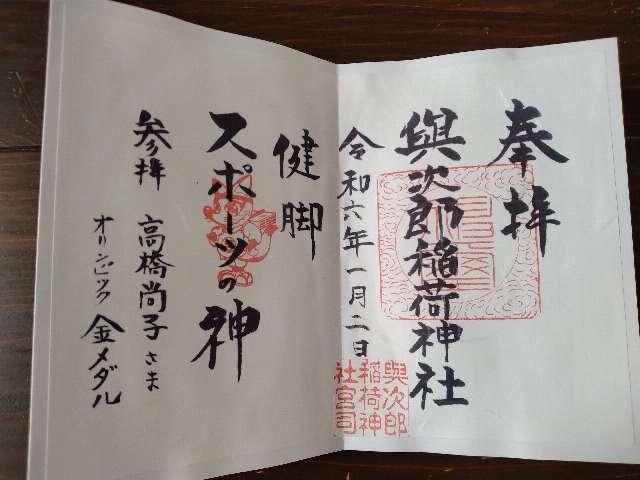 奉拝
與次郎稲荷神社
令和六年一月二日
與次郎
稲荷神
社宮司
健脚
スポーツの神
参拝 高橋尚子さま
オリンピック 金メダル